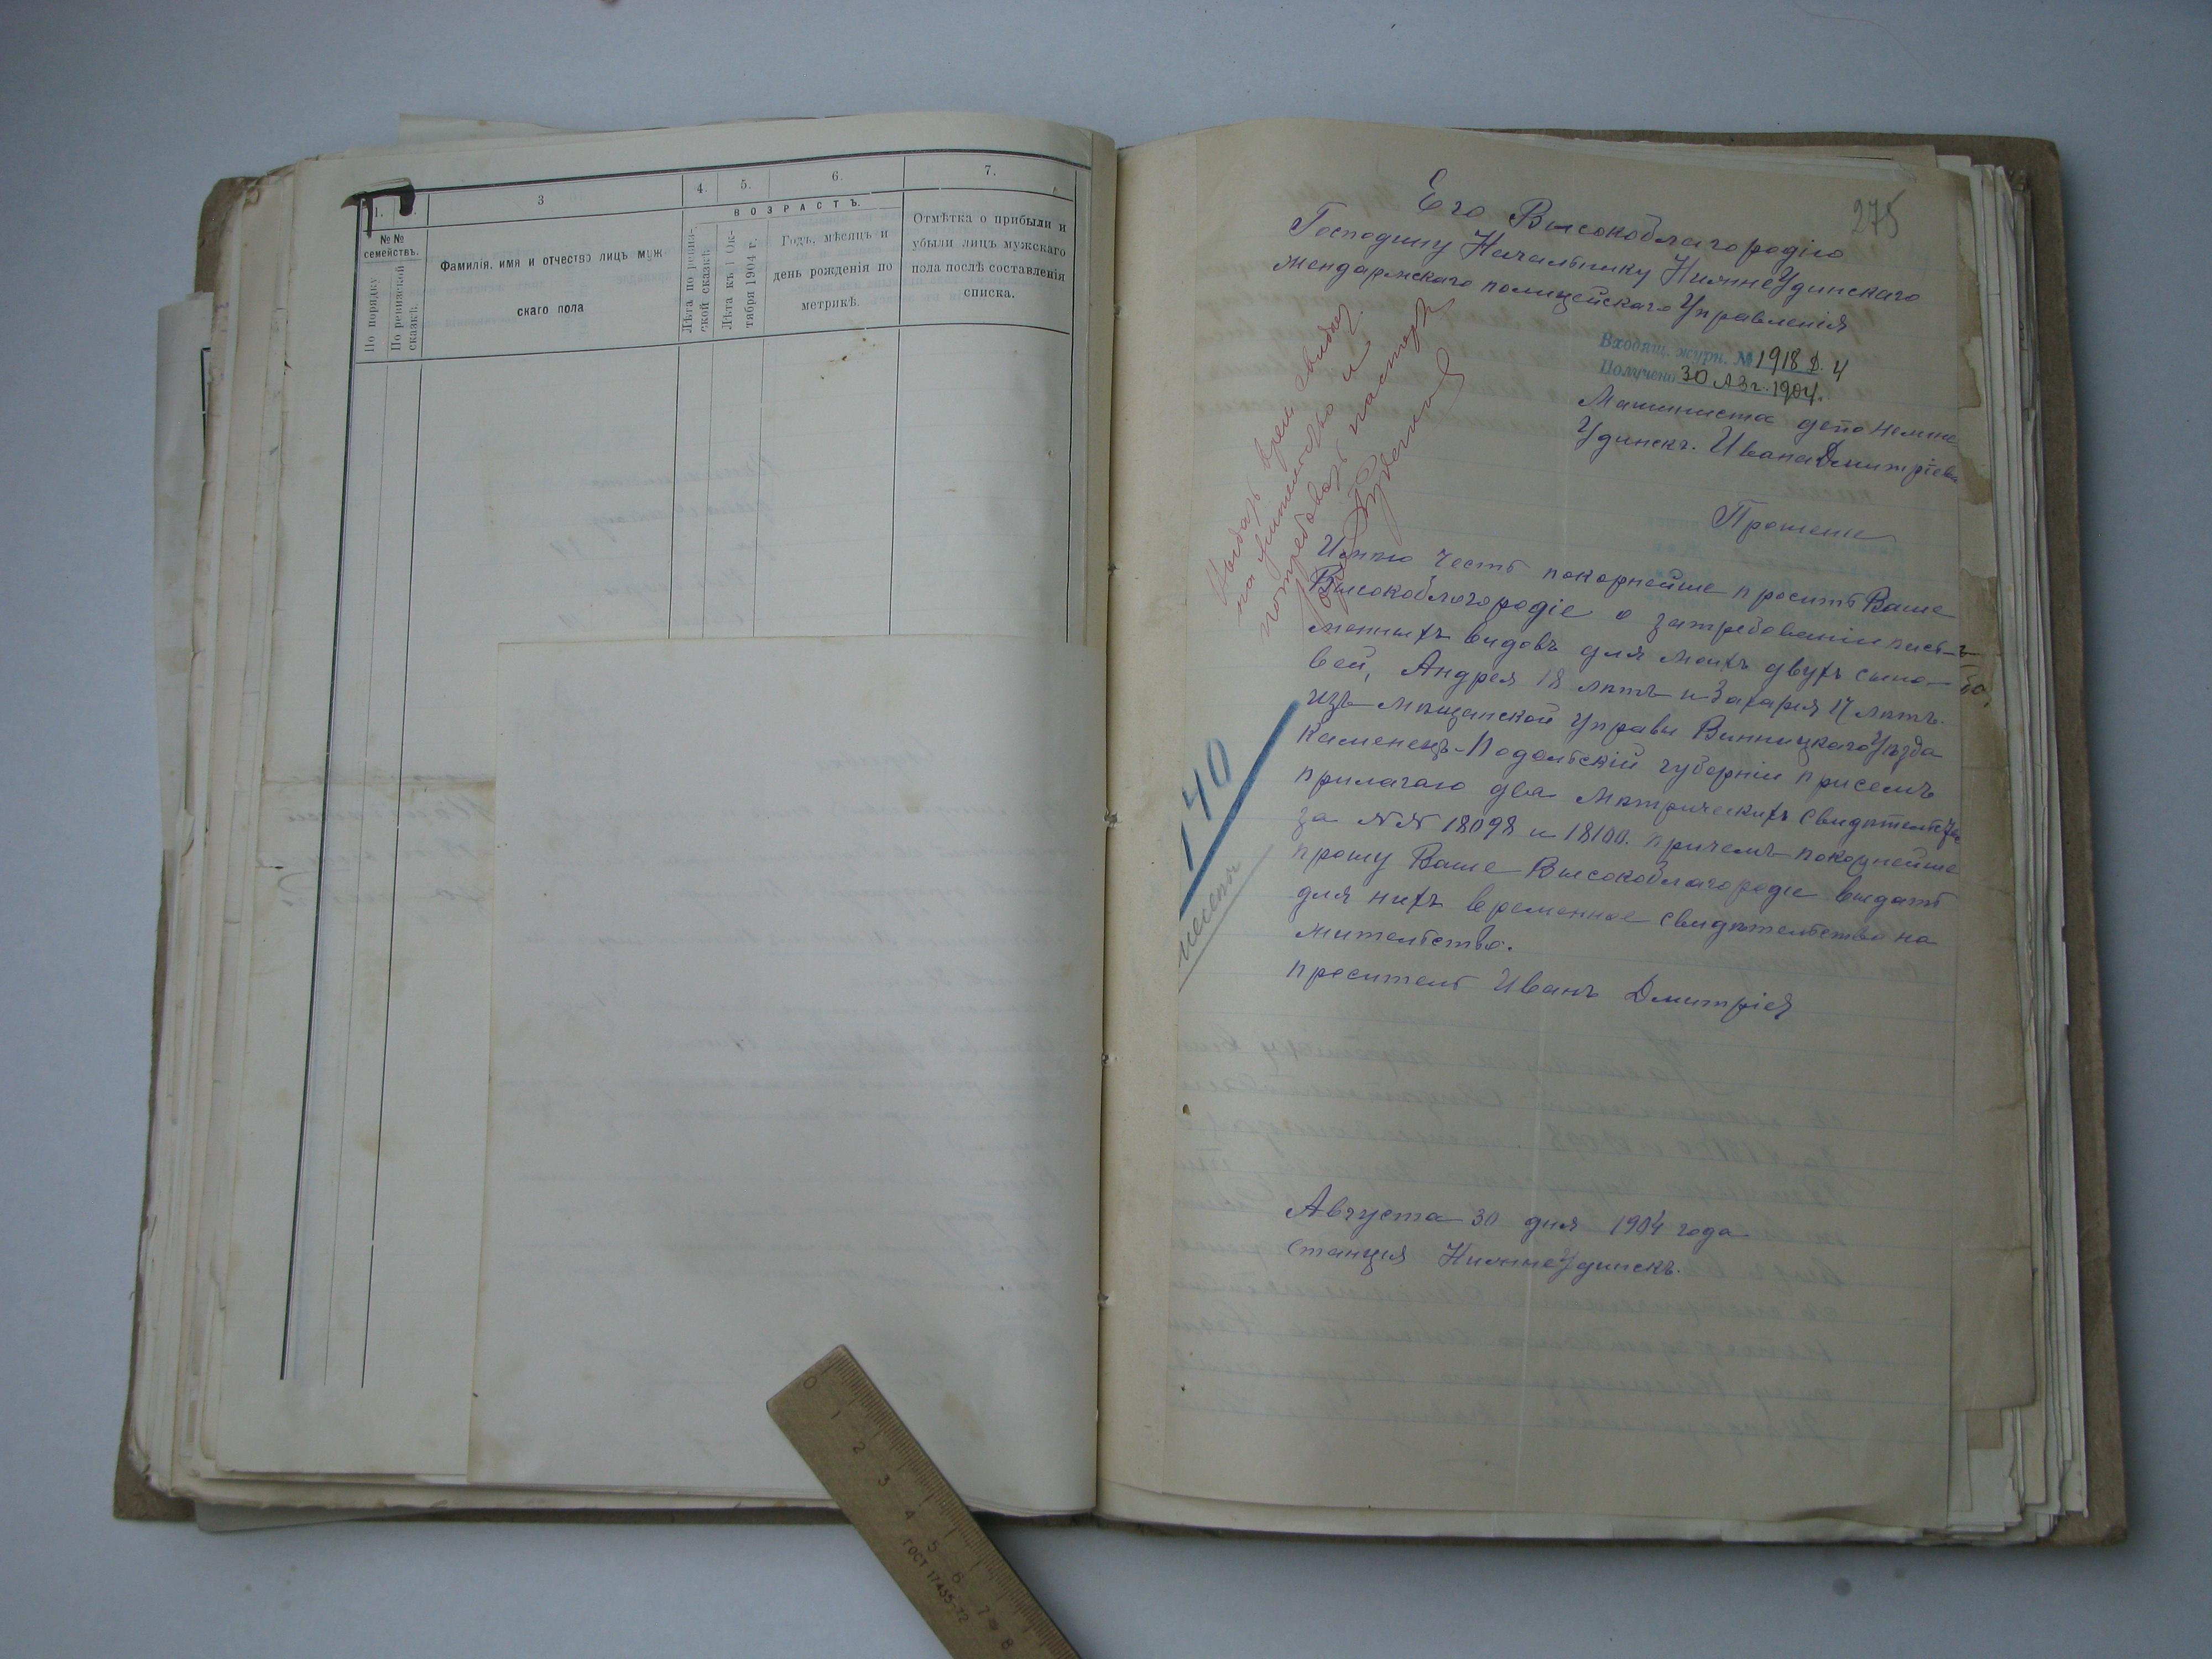 1.
3
4.
5.
6.
7.
№№ семействъ.
По порядку
По ревизской сказкѣ.
Фамилія, имя и отчество лицъ муж
скаго пола
ВОЗРАСТЪ.
Лѣта по ревиз-
ской сказкѣ.
Лѣта къ 1 Ок-
тября 1904 г.
Годъ, мѣсяцъ и
день рожденія по
метрикѣ.
Отмѣтка о прибыли и
убыли лицъ мужскаго
пола послѣ составленія
списка.
275
Его Высокоблагородію
Господину Начальнику НижнеУдинскаго
жендармскаго полицейскаго Управленія
Входящ. журн. № 1918 Д. 4
Получено 30 Авг. 1904.
Машиниста депо Нежне
Удинскъ. Ивана Дмитріева
Прошение
Имѣю честь покорнейше просить Ваше
Высокоблогородіе о затребованіи пись-
менныхъ видовъ для моихъ двухъ сыно-
вей, Андрея 18 лѣтъ и Захария 17 лѣтъ.
изъ Мѣщанской Управы Винницкаго Уѣзда
Каменецъ-Подольскій губерніи присемъ
прилагаю два Мѣтрическихъ Свидѣтельства
за №№ 18098 и 18100. причемъ покорнейше
прошу Ваше Высокоблагородіе выдать
для нихъ временное свидѣтельство на
жительство.
проситель Иванъ Дмитріев
Августа 30 дня 1904 года
Станция НижнеУдинскъ.
Выдать врем свидет
на жительство и
потребовать паспорт
140
0
1
2
3
4
5
6
7
8
ГОСТ 17435-72